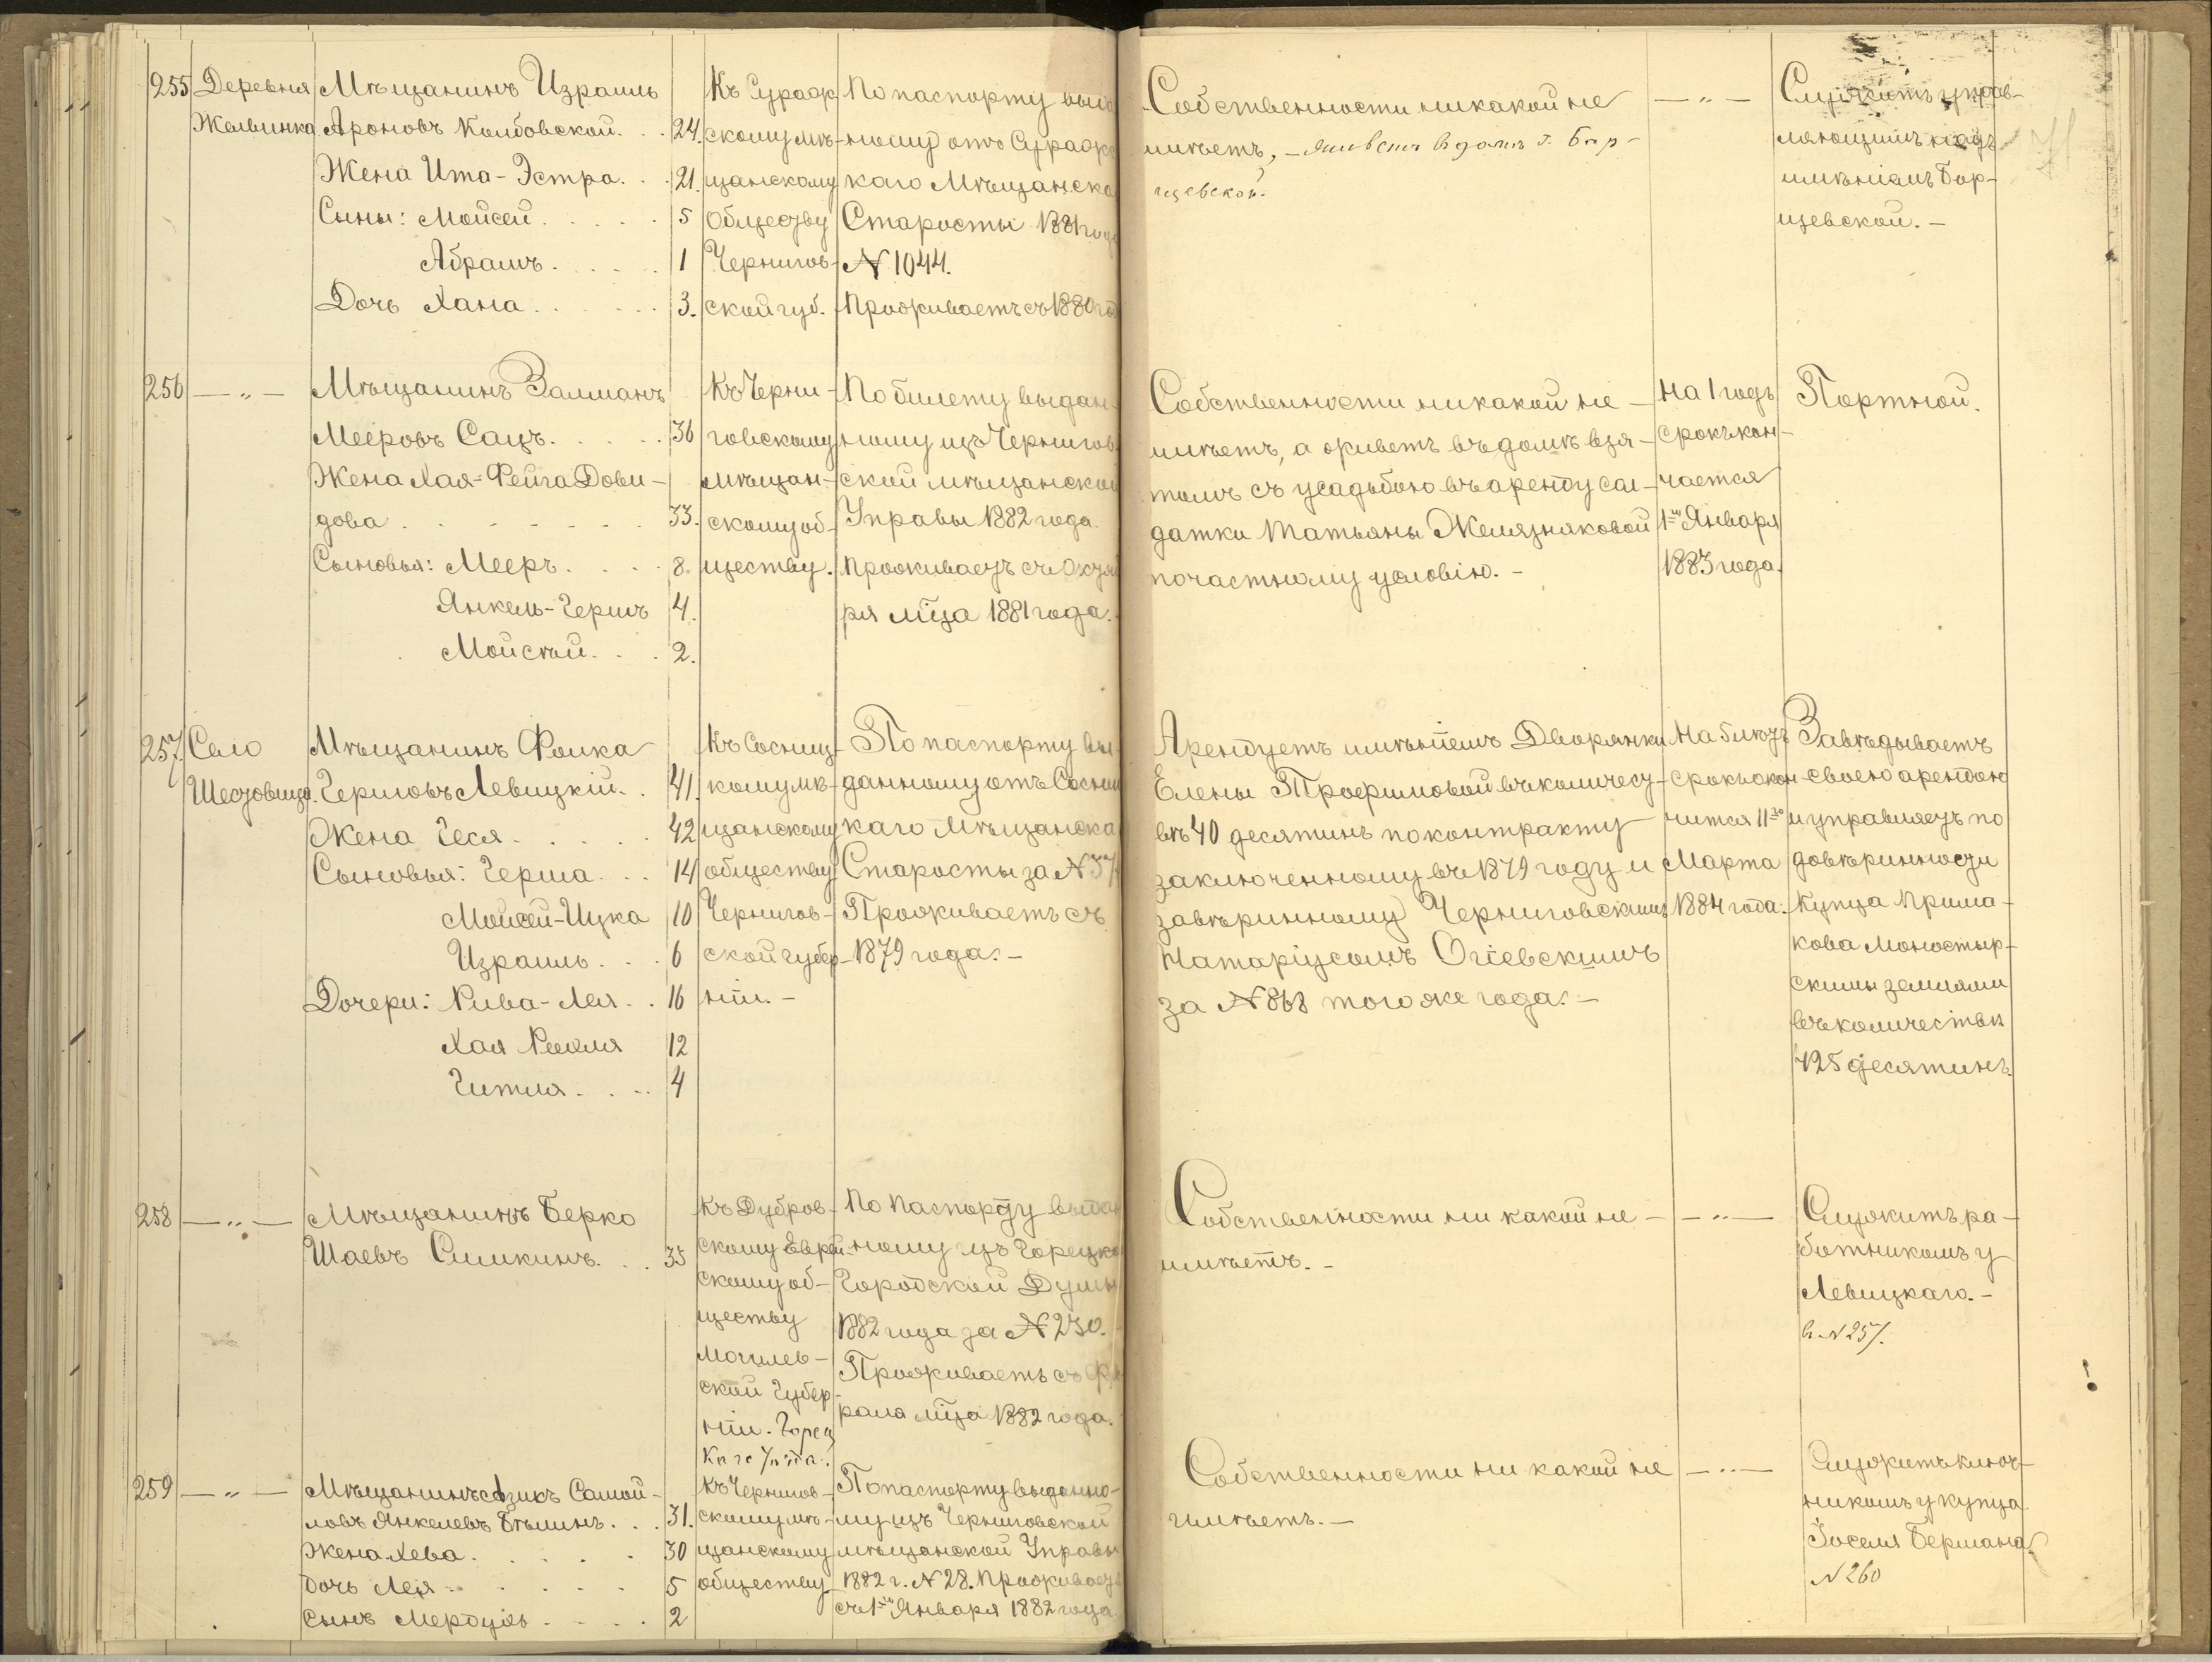 255 Деревня Мѣщанинъ Израиль
Жолвинка Ароновъ Колбовской. . 24.
Жена Ита-Эстра. . 21.
Сыны: Мойсей . . . . 5
Абрамъ . . . . 1
Дочь Хана . . . . . 3.
Къ Сураж-
скому мѣ-
щанскому
обществу
Чернигов-
ской губ.
По паспорту выдан
ному отъ Сураж
каго Мѣщанска
Старосты 1881 года
№ 1044.
Проживаетъ съ 1880 год
Собственности никакой не
имѣетъ, – живетъ в домѣ г. Бор-
щевской.
— „ —
Служитъ управ-
ляющимъ надъ
имѣніемъ Бор-
щевской. –
256 — „ — Мѣщанинъ Залманъ
Мееровъ Сацъ. . . . . 36
Жена Хая-Фейга Дови-
дова . . . . . . . 33.
Сыновья: Мееръ. . . . 8.
Янкель-Гершъ 4.
Мойсѣй. . . 2.
Къ Черни-
говскому
мѣщан-
скому об-
ществу.
По билету выдан-
ному изъ Чернигов
ской мѣщанской
Управы 1882 года.
Проживаетъ съ Октяб
ря мца 1881 года.
Собственности никакой не –
имѣетъ, а живетъ въ домѣ взя-
томъ съ усадьбою въ аренду сол-
датки Татьяны Желязняковой
по частному условію. –
На 1 годъ
срокъ кон-
чается
1го Января
1883 года.
Портной.
257. Село Мѣщанинъ Фолка
Шестовица. Гершовъ Левицкій. . 41.
Жена Геся . . . . . 42
Сыновья: Герша . . . 14
Мойсей-Ицка 10
Израиль. . . 6
Дочери: Рива-Лея. . 16
Хая Рохля 12
Гитля. . . . 4
Къ Сосниц-
кому мѣ-
щанскому
обществу
Чернигов-
ской губер-
ніи. –
По паспорту вы-
данному отъ Сосниц
каго Мѣщанска
Старосты за № 37
Проживаетъ съ
1879 года. –
Арендуетъ имѣніемъ Дворянки
Елены Трофимовой въ количест-
вѣ 40 десятинъ по контракту
заключенному въ 1879 году и
завѣринному Черниговскимъ
Натаріусомъ Огіевскимъ
за № 868 того же года. –
На 5 лѣтъ
срокъ окон-
чится 11го
Марта
1884 года.
Завѣдываетъ
своею арендою
и управляетъ по
довѣринности
Купца Прима-
кова Моностыр-
скими землями
въ количествѣ
425 десятинъ.
258 — „ — Мѣщанинъ Берко
Шаевъ Симкинъ. . . 35
Къ Дубров-
скому Еврей-
скому об-
ществу
Могилев-
ской Губер-
ніи. Горец
каго Уѣзда.
По Паспорту выдан
ному изъ Горецко
Городской Думы
1882 года за № 230.
Проживаетъ съ Фев
раля мца 1882 года.
Собственности ни какой не –
имѣетъ. –
— „ —
Служитъ ра-
ботникомъ у
Левицкаго. –
в № 257.
259 — „ — Мѣщанинъ Азикъ Самой-
ловъ Янкелевъ Бѣлинъ. . . 31.
Жена Хева . . . . . 30
Дочь Лея . . . . . . 5
Сынъ Мордухъ . . . . 2
Къ Чернигов-
скому мѣ-
щанскому
обществу
По паспорту выданно-
му изъ Черниговской
мѣщанской Управы
1882 г. № 28. Проживаетъ
съ 1го Января 1882 года.
Собственности ни какой не
имѣетъ. –
— „ —
Служитъ ключ-
никомъ у купца
Іоселя Бермана
№ 260